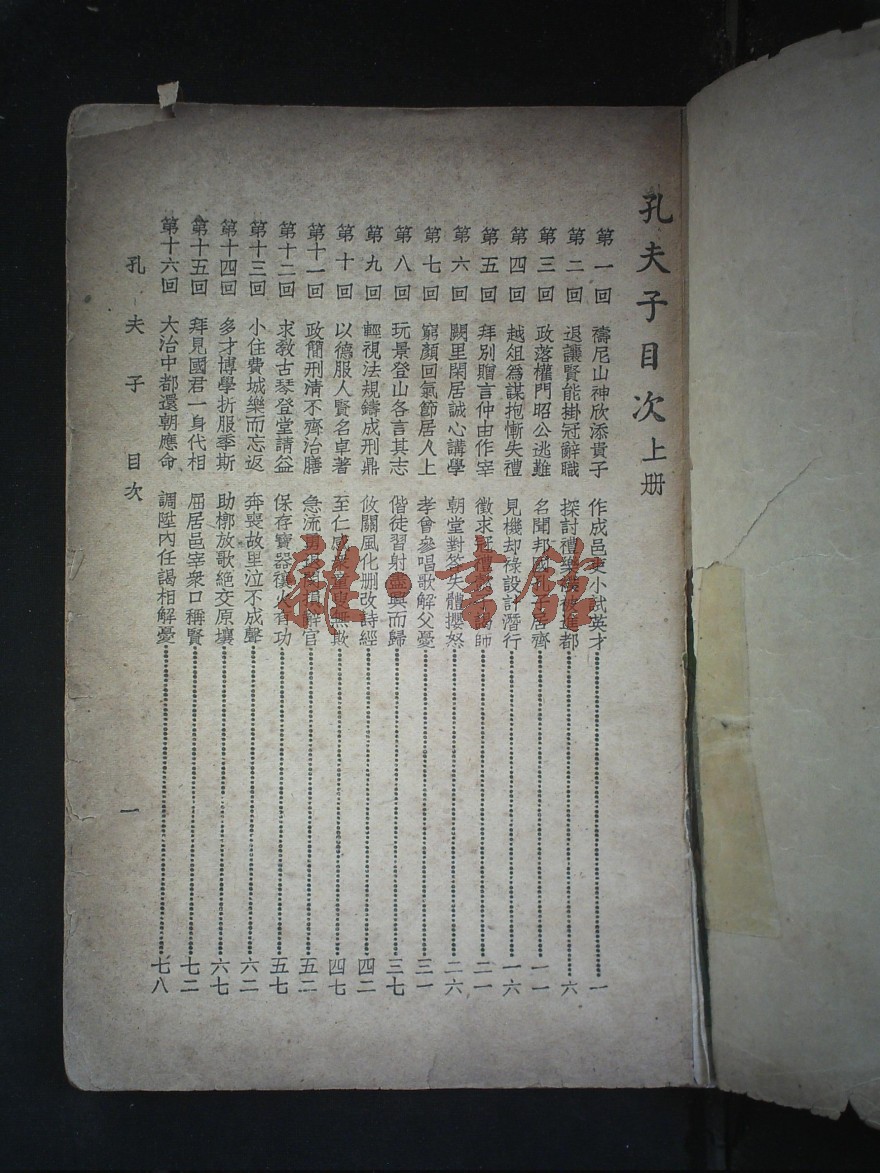 孔夫子目次上册
第一回 禱尼山神欣添貴子 作成邑吏小試英才 一
第二回 退讓賢能掛冠辭職 探討禮樂 進都 六
第三回 政落權門昭公逃難 名聞邦國孔子居齊 一一
第四回 越俎爲謀抱慚失禮 見機却祿設計潛行 一六
第五回 拜別贈言仲由作宰 徵求 師 二一
第六回 闕里閑居誠心講學 朝堂對答失體攖怒 二六
第七回 窮顏回氣節居人上 孝曾參唱歌解父憂 三一
第八回 玩景登山各言其志 偕徒習射盡興而歸 三七
第九回 輕視法規鑄成刑鼎 攸關風化删改詩經 四二
第十回 以德服人賢名卓著 至仁感衆 無欺 四七
第十一回 政簡刑清不齊治膳 急流勇退 辭官 五二
第十二回 求教古琴登堂請益 保存寶器 火有功 五七
第十三回 小住費城樂而忘返 奔喪故里泣不成聲 六二
第十四回 多才博學折服季斯 助槨放歌絶交原壤 六七
第十五回 拜見國君一身代相 屈居邑宰衆口稱賢 七二
第十六回 大治中都還朝應命 調陞內任謁相解憂 七八
孔夫子 目次 一
雜·書館